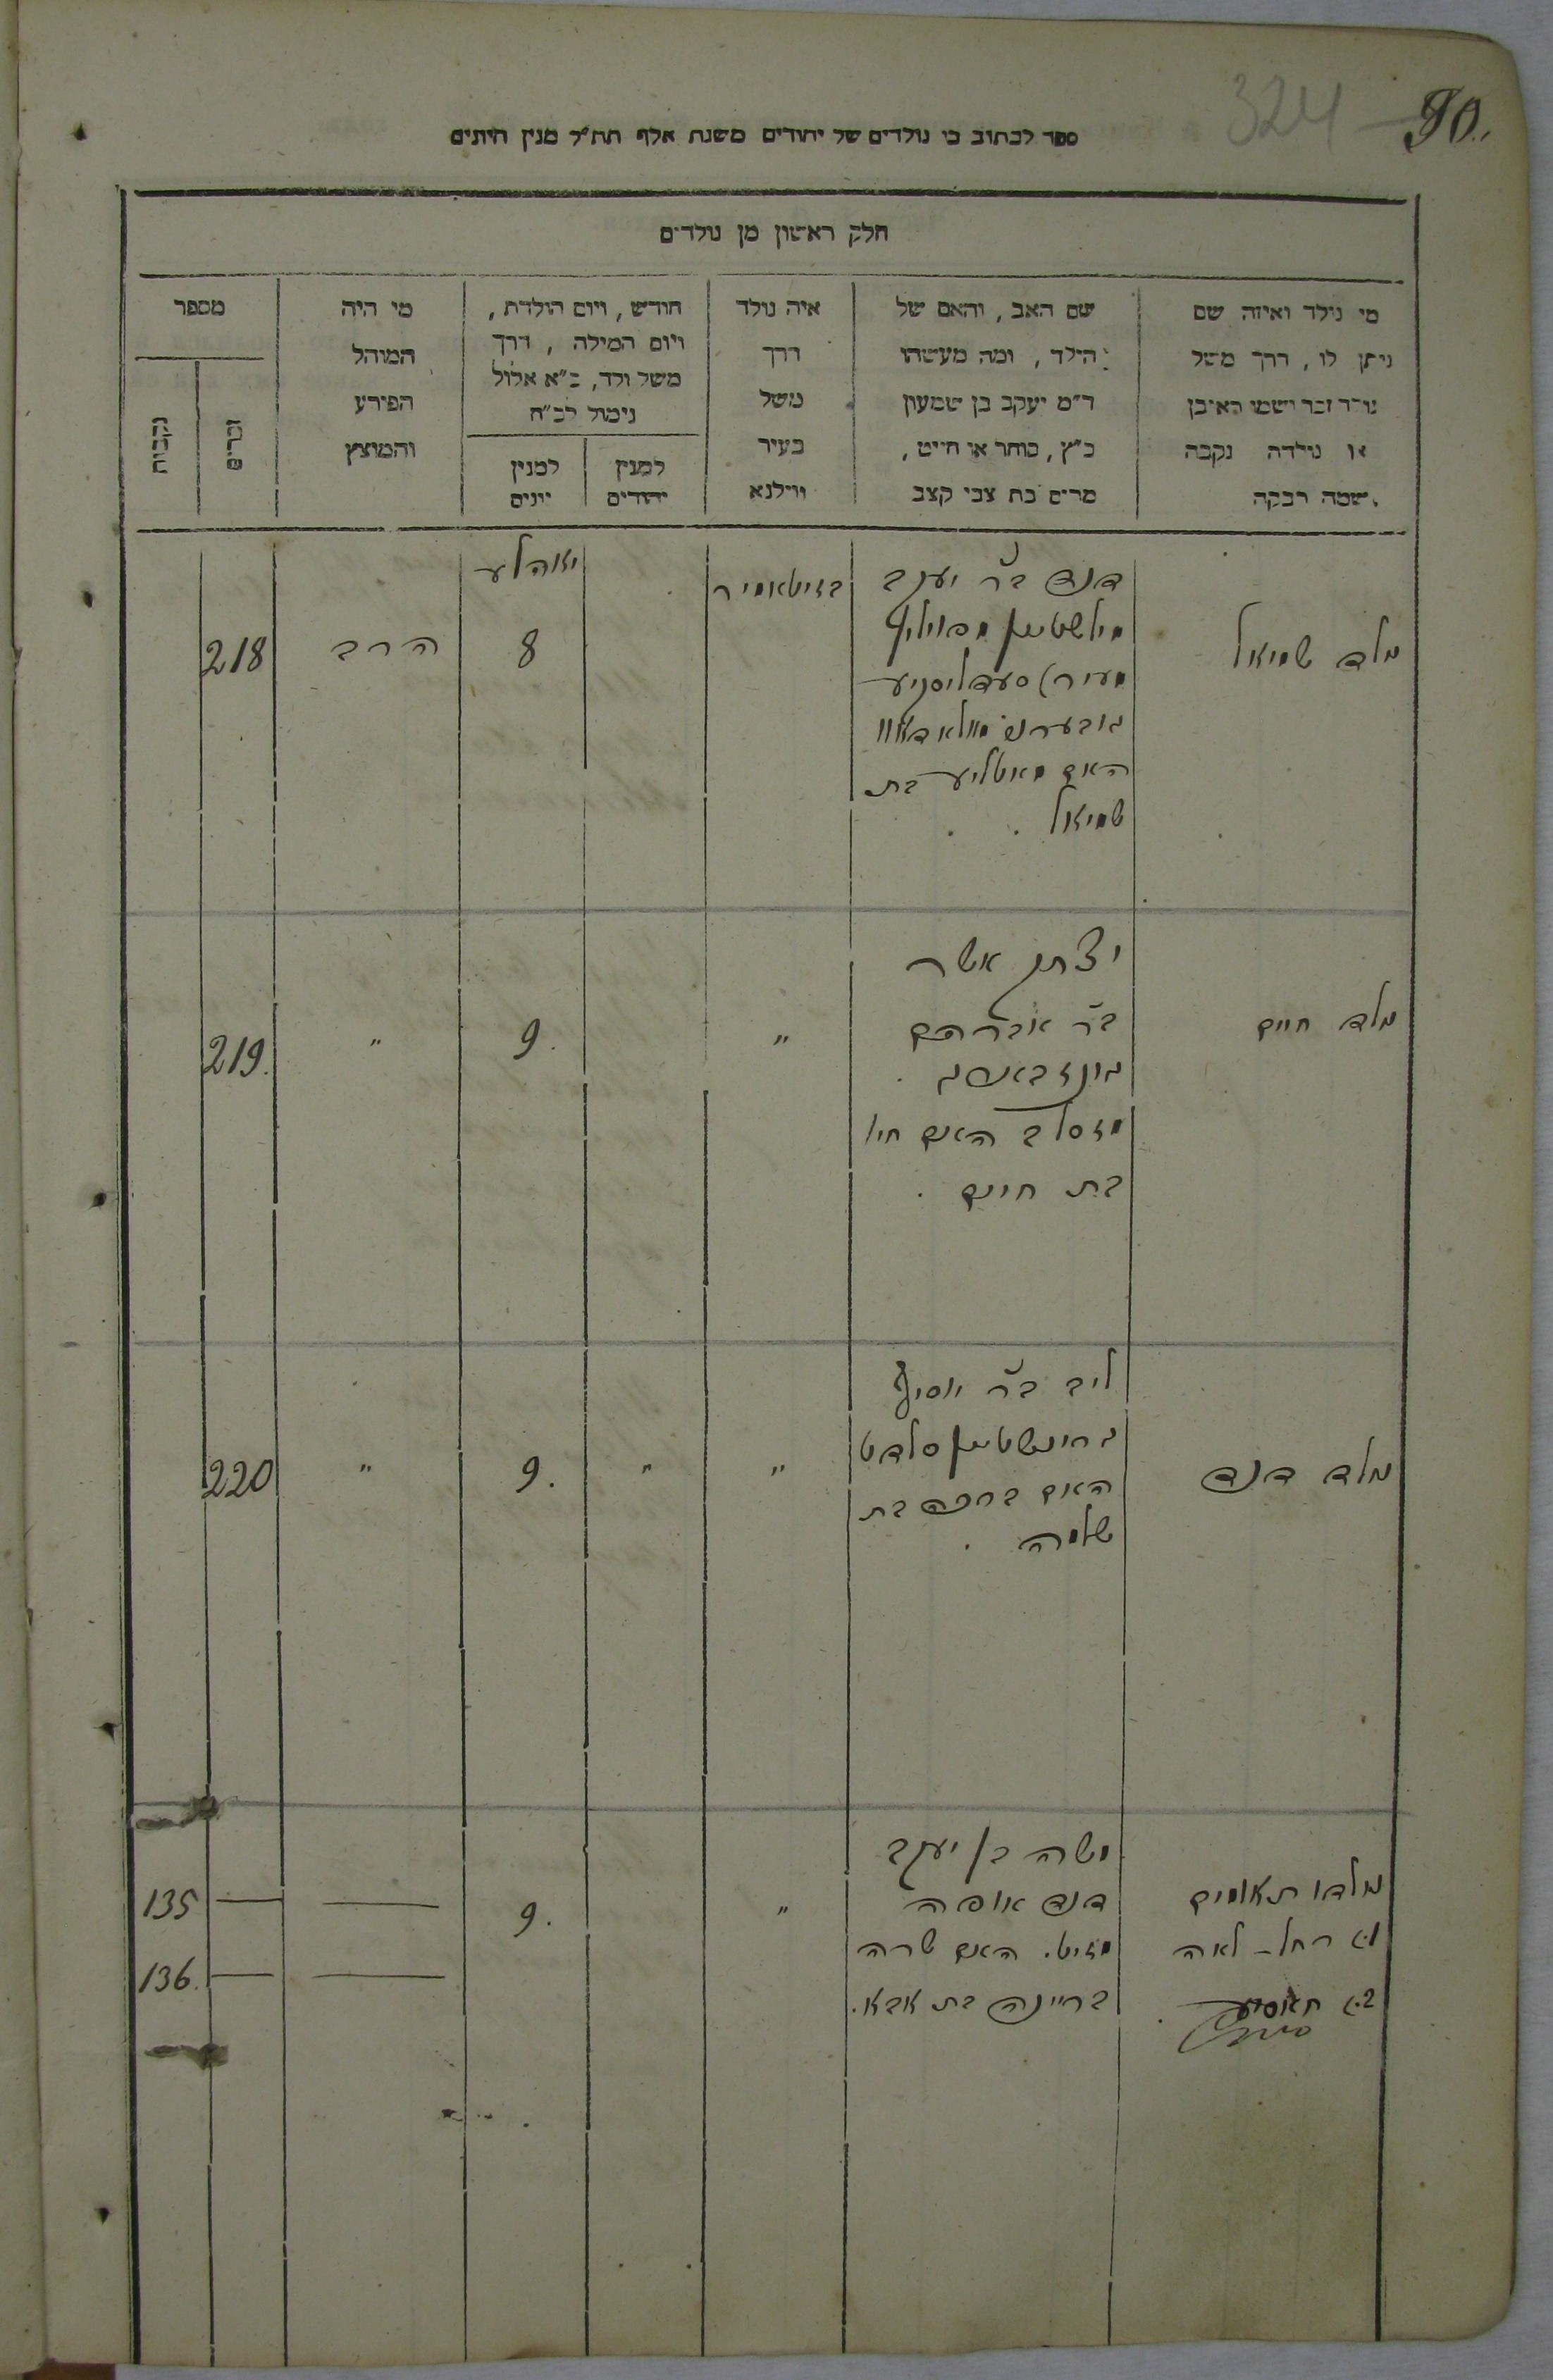 324
90.
ספר לכתוב בו נולדים של יהודים משנת אלף תת״ל מנין היונים
חלק ראשון מן נולדים
מי נולד ואיזה שם
ניתן לו, דרך משל
נולד זכר ושמו ראובן
או נולדה נקבה
שמה רבקה
שם האב, והאם של
הילד, ומה מעשהו
ד״מ יעקב בן שמעון
כ״ץ, סוחר או חייט,
מרים בת צבי קצב
איה נולד
דרך
משל
בעיר
ווילנא
חודש, ויום הולדת,
ויום המילה, דרך
משל ולד, כ״א אלול
נימול לכ״ח
למנין
יהודים
למנין
יונים
מי היה
המוהל
הפירע
והמוצץ
מספר
זכרים
נקבות
נולד שמואל
דוד ב״ר יעקב
מילשטיין
האם בת
שמואל
בזיטאמיר
8
הרב
218
נולד חיים
אשר
ב״ר אברהם
האם חי׳
בת חיים
"
9.
"
219.
נולד דוד
ליב ב״ר יוסיף
גרינשטיין סלדט
האם ברכה בת
שלמה
"
"
9.
"
220
נולדו תאומים
1.) רחל - לאה
2.)
משה בן יעקב
דוד
מזיט. האם שרה
בריינה בת אבא.
"
9.
135
136.